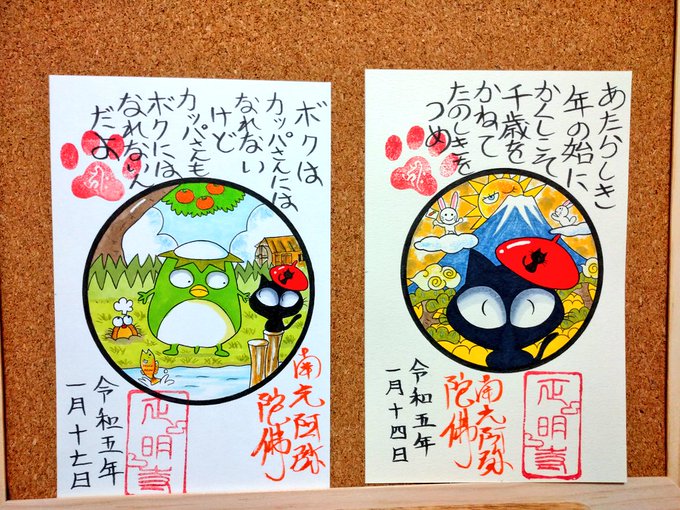 ボクは
カッパさんには
なれない
けど
カッパさんも
ボクには
なれないん
だよ
南无阿弥
陀佛
令和五年
一月十七日
正明寺
あたらしき
年の始に
かくしこそ
千歳を
かねて
たのしきを
つめ
南无阿弥
陀佛
令和五年
一月十四日
正明寺